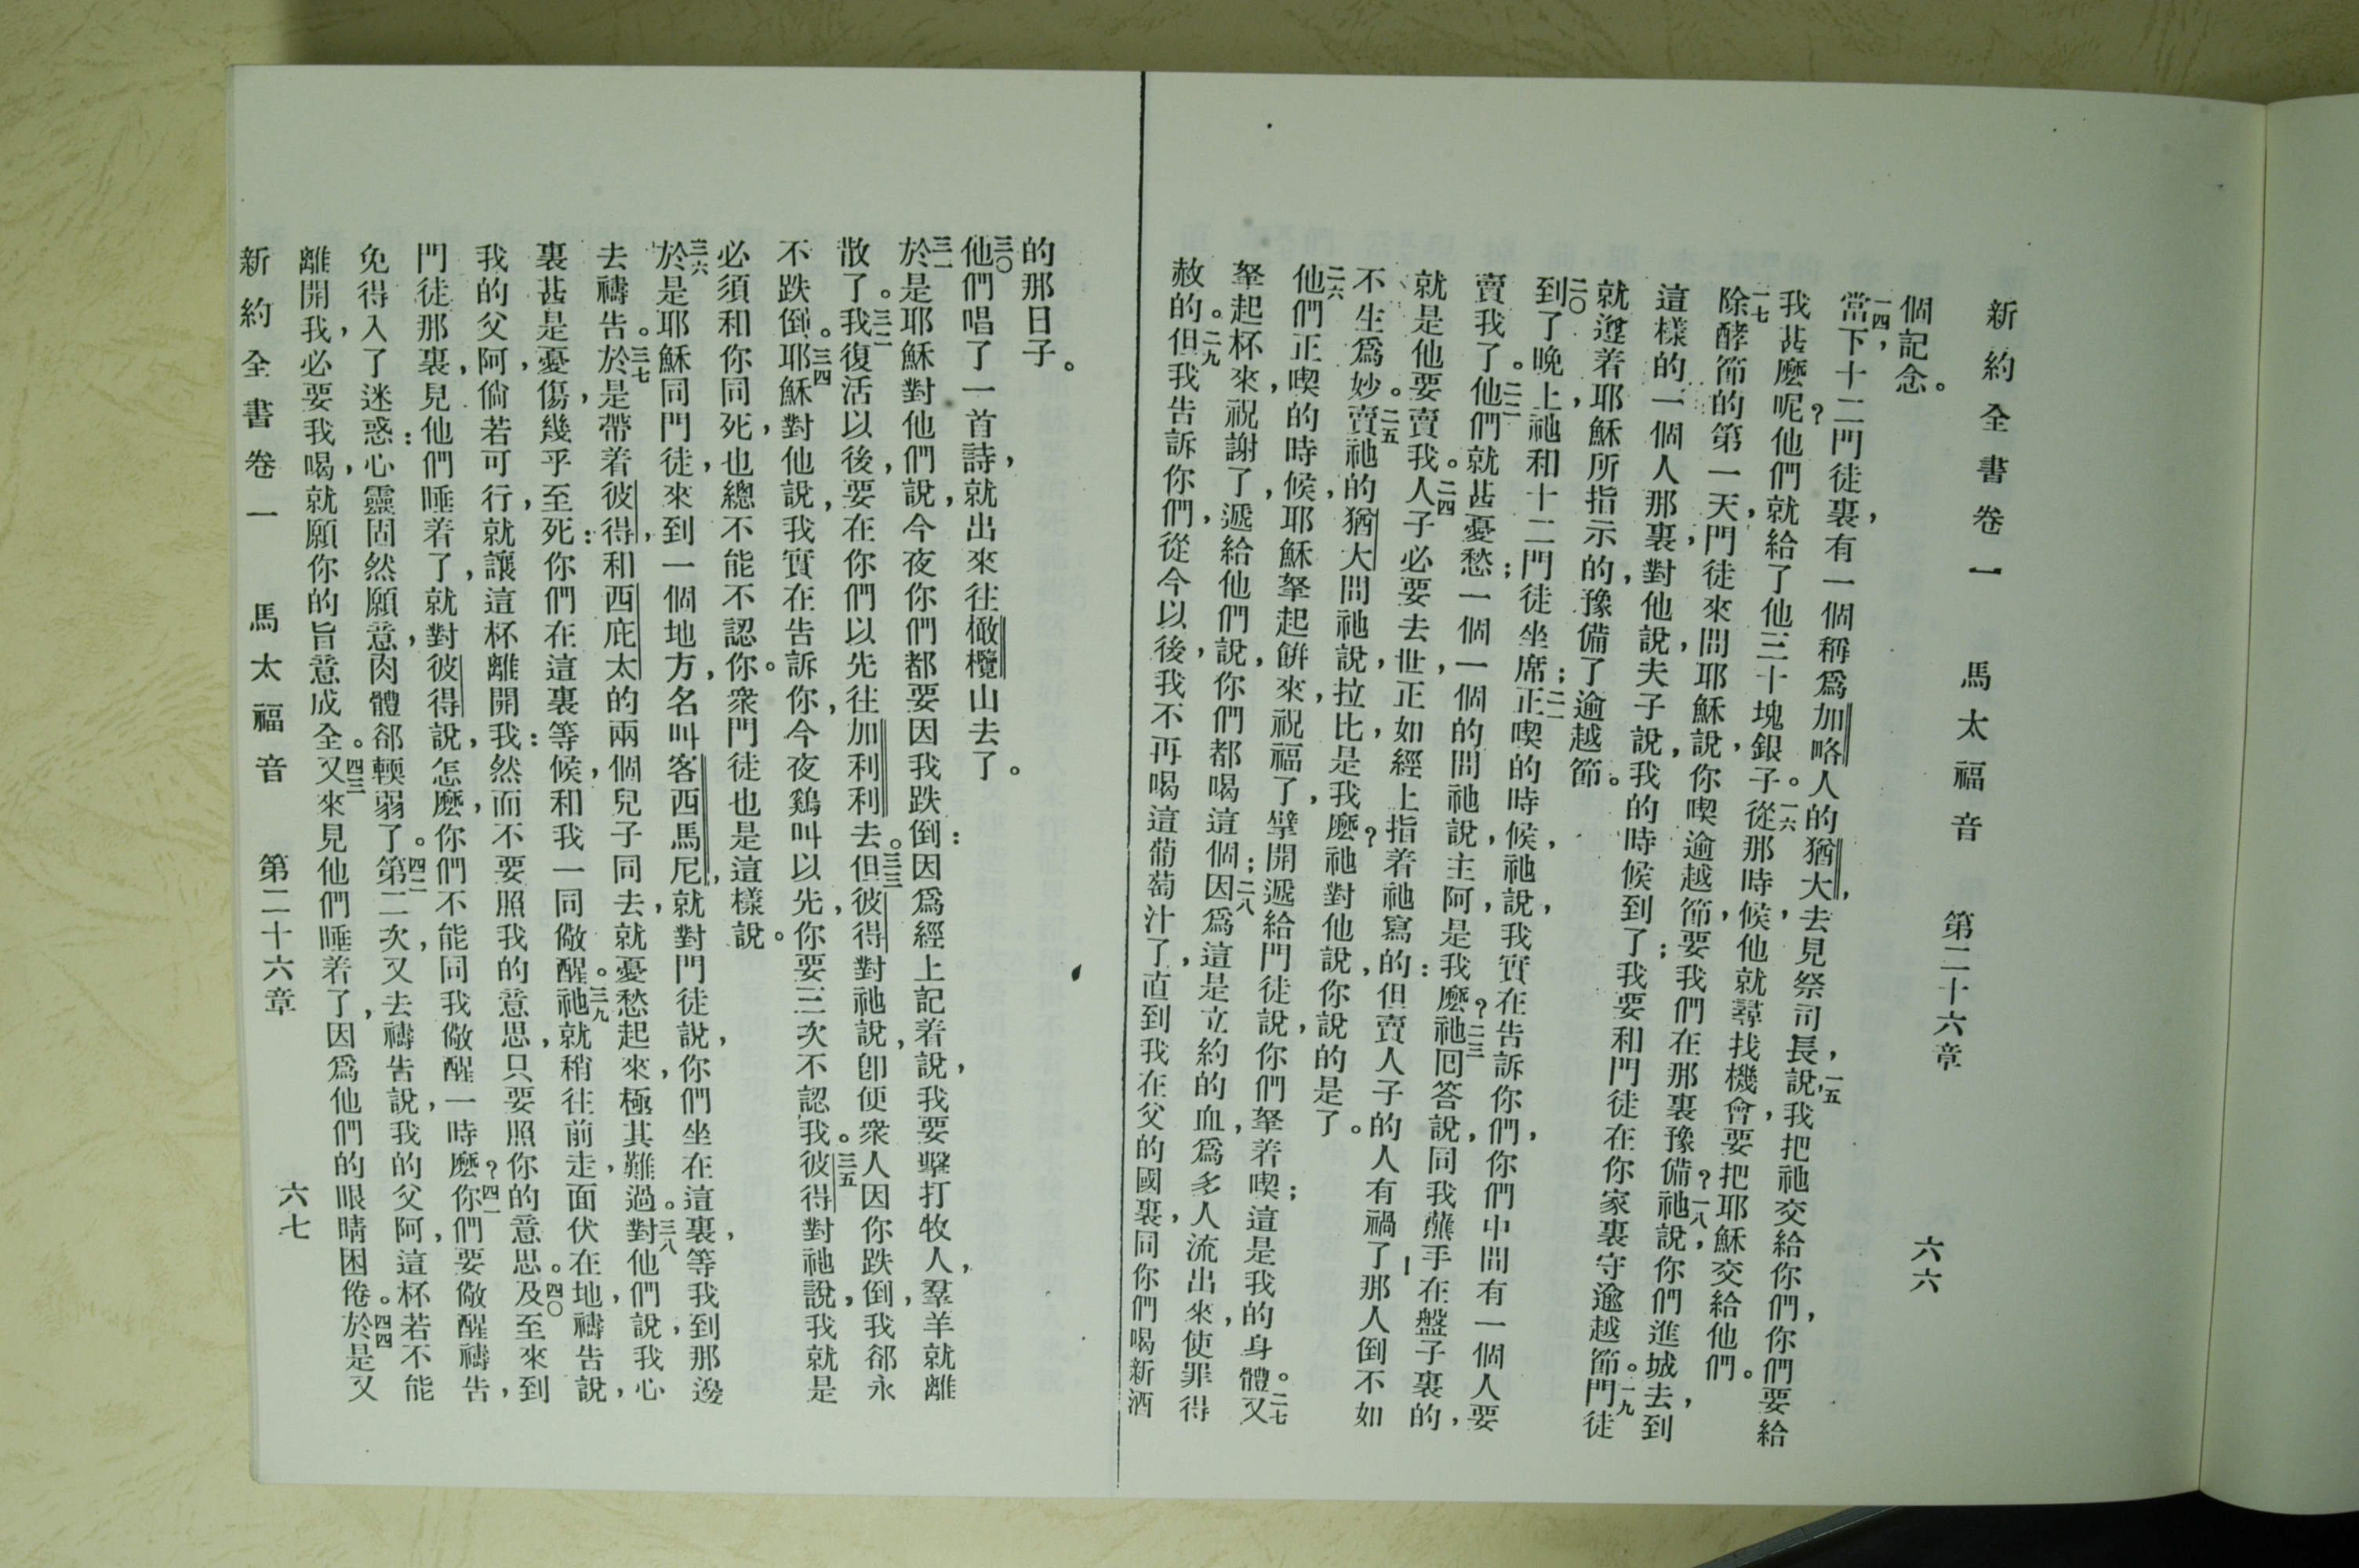 新約全書卷一 馬太福音 第二十六章 六六
個記念。
一四當下十二門徒裏,有一個稱爲加略人的猶大,去見祭司長,一五說,我把祂交給你們,你們要給
我甚麼呢?他們就給了他三十塊銀子。一六從那時候,他就尋找機會,要把耶穌交給他們。
一七除酵節的第一天,門徒來問耶穌說,你喫逾越節,要我們在那裏豫備?一八祂說,你們進城去,到
這樣的一個人那裏,對他說,夫子說,我的時候到了;我要和門徒在你家裏守逾越節。一九門徒
就遵着耶穌所指示的,豫備了逾越節。
二〇到了晚上,祂和十二門徒坐席;二一正喫的時候,祂說,我實在告訴你們,你們中間有一個人要
賣我了。二二他們就甚憂愁;一個一個的問祂說,主阿,是我麼?二三祂囘答說,同我蘸手在盤子裏的,
就是他要賣我。二四人子必要去世,正如經上指着祂寫的:但賣人子的人有禍了!那人倒不如
不生爲妙。二五賣祂的猶大問祂說,拉比,是我麼?祂對他說,你說的是了。
二六他們正喫的時候,耶穌拏起餅來,祝福了,擘開遞給門徒說,你們拏着喫;這是我的身體。二七又
拏起杯來,祝謝了,遞給他們說,你們都喝這個;二八因爲這是立約的血,爲多人流出來,使罪得
赦的。二九但我告訴你們,從今以後,我不再喝這葡萄汁了,直到我在父的國裏,同你們喝新酒
的那日子。
三〇他們唱了一首詩,就出來往橄欖山去了。
三一於是耶穌對他們說,今夜你們都要因我跌倒:因爲經上記着說,我要擊打牧人,羣羊就離
散了。三二我復活以後,要在你們以先往加利利去。三三但彼得對祂說,卽便衆人因你跌倒,我郤永
不跌倒。三四耶穌對他說,我實在告訴你,今夜鷄叫以先,你要三次不認我。三五彼得對祂說,我就是
必須和你同死,也總不能不認你。衆門徒也是這樣說。
三六於是耶穌同門徒,來到一個地方,名叫客西馬尼,就對門徒說,你們坐在這裏,等我到那邊
去禱告。三七於是帶着彼得,和西庇太的兩個兒子同去,就憂愁起來,極其難過。三八對他們說,我心
裏甚是憂傷,幾乎至死:你們在這裏等候,和我一同儆醒。三九祂就稍往前走,面伏在地,禱告說,
我的父阿,倘若可行,就讓這杯離開我:然而不要照我的意思,只要照你的意思。四〇及至來到
門徒那裏,見他們睡着了,就對彼得說,怎麼,你們不能同我儆醒一時麼?四一你們要儆醒禱告,
免得入了迷惑:心靈固然願意,肉體郤輭弱了。四二第二次,又去禱告說,我的父阿,這杯若不能
離開我,必要我喝,就願你的旨意成全。四三又來見他們睡着了,因爲他們的眼睛困倦。四四於是又
新約全書卷一 馬太福音 第二十六章 六七